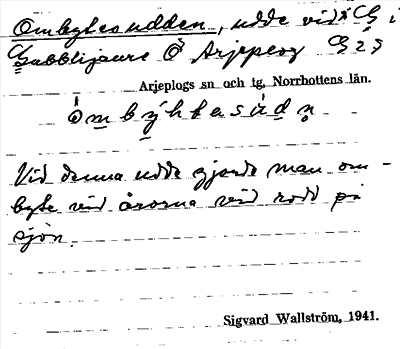 Ombytesudden, udde vid
Gubblijaure Ö Arjeplog
Arjeplogs sn och tg, Norrbottens län.
Vid denna udde gjorde man om-
byte vid årorna vid rodd på
sjön.
Sigvard Wallström, 1941.